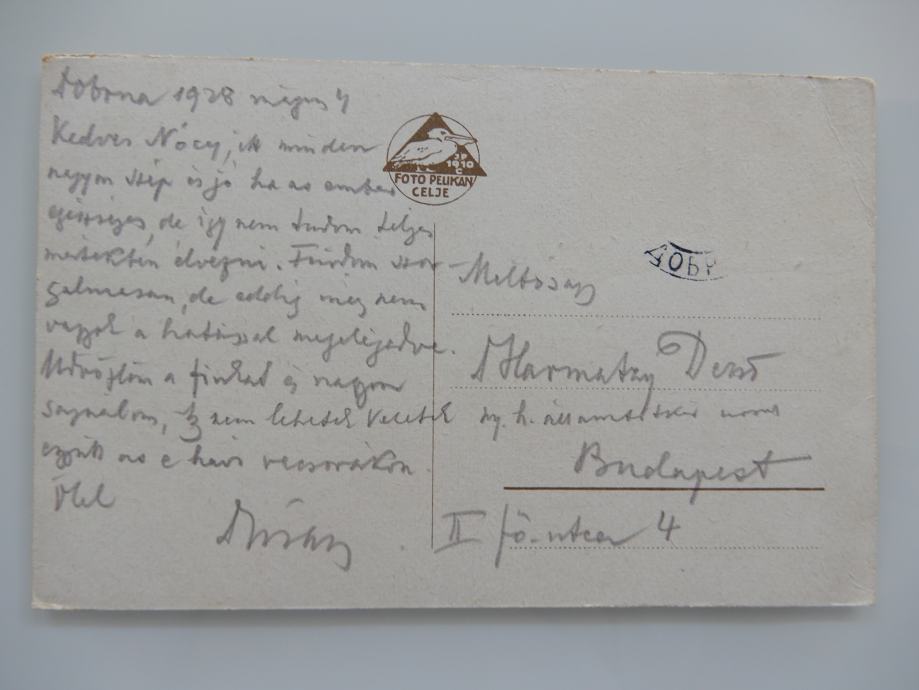 Dobrna 1928 május 4
Kedves Nócy, itt minden
nagyon szép és jó ha az ember
egészséges, de így nem tudom teljes
mértékben élvezni. Fürdöm szor-
galmasan, de eddig még nem
vagyok a hatással megelégedve.
Üdvözlöm a fiukat és nagyon
sajnálom, hogy nem lehetek Veletek
együtt az e havi vacsorákon.
Ölel
FOTO PELIKAN
CELJE
JP
1910
C
ДОБР
Méltóságos
Harmatzy Dezső
ny. h. államtitkár urnak
Budapest
II fő-utca 4